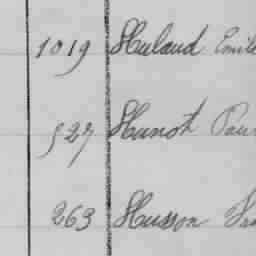 1019 Huland Emile
527 Hunot Pau
263 Husson